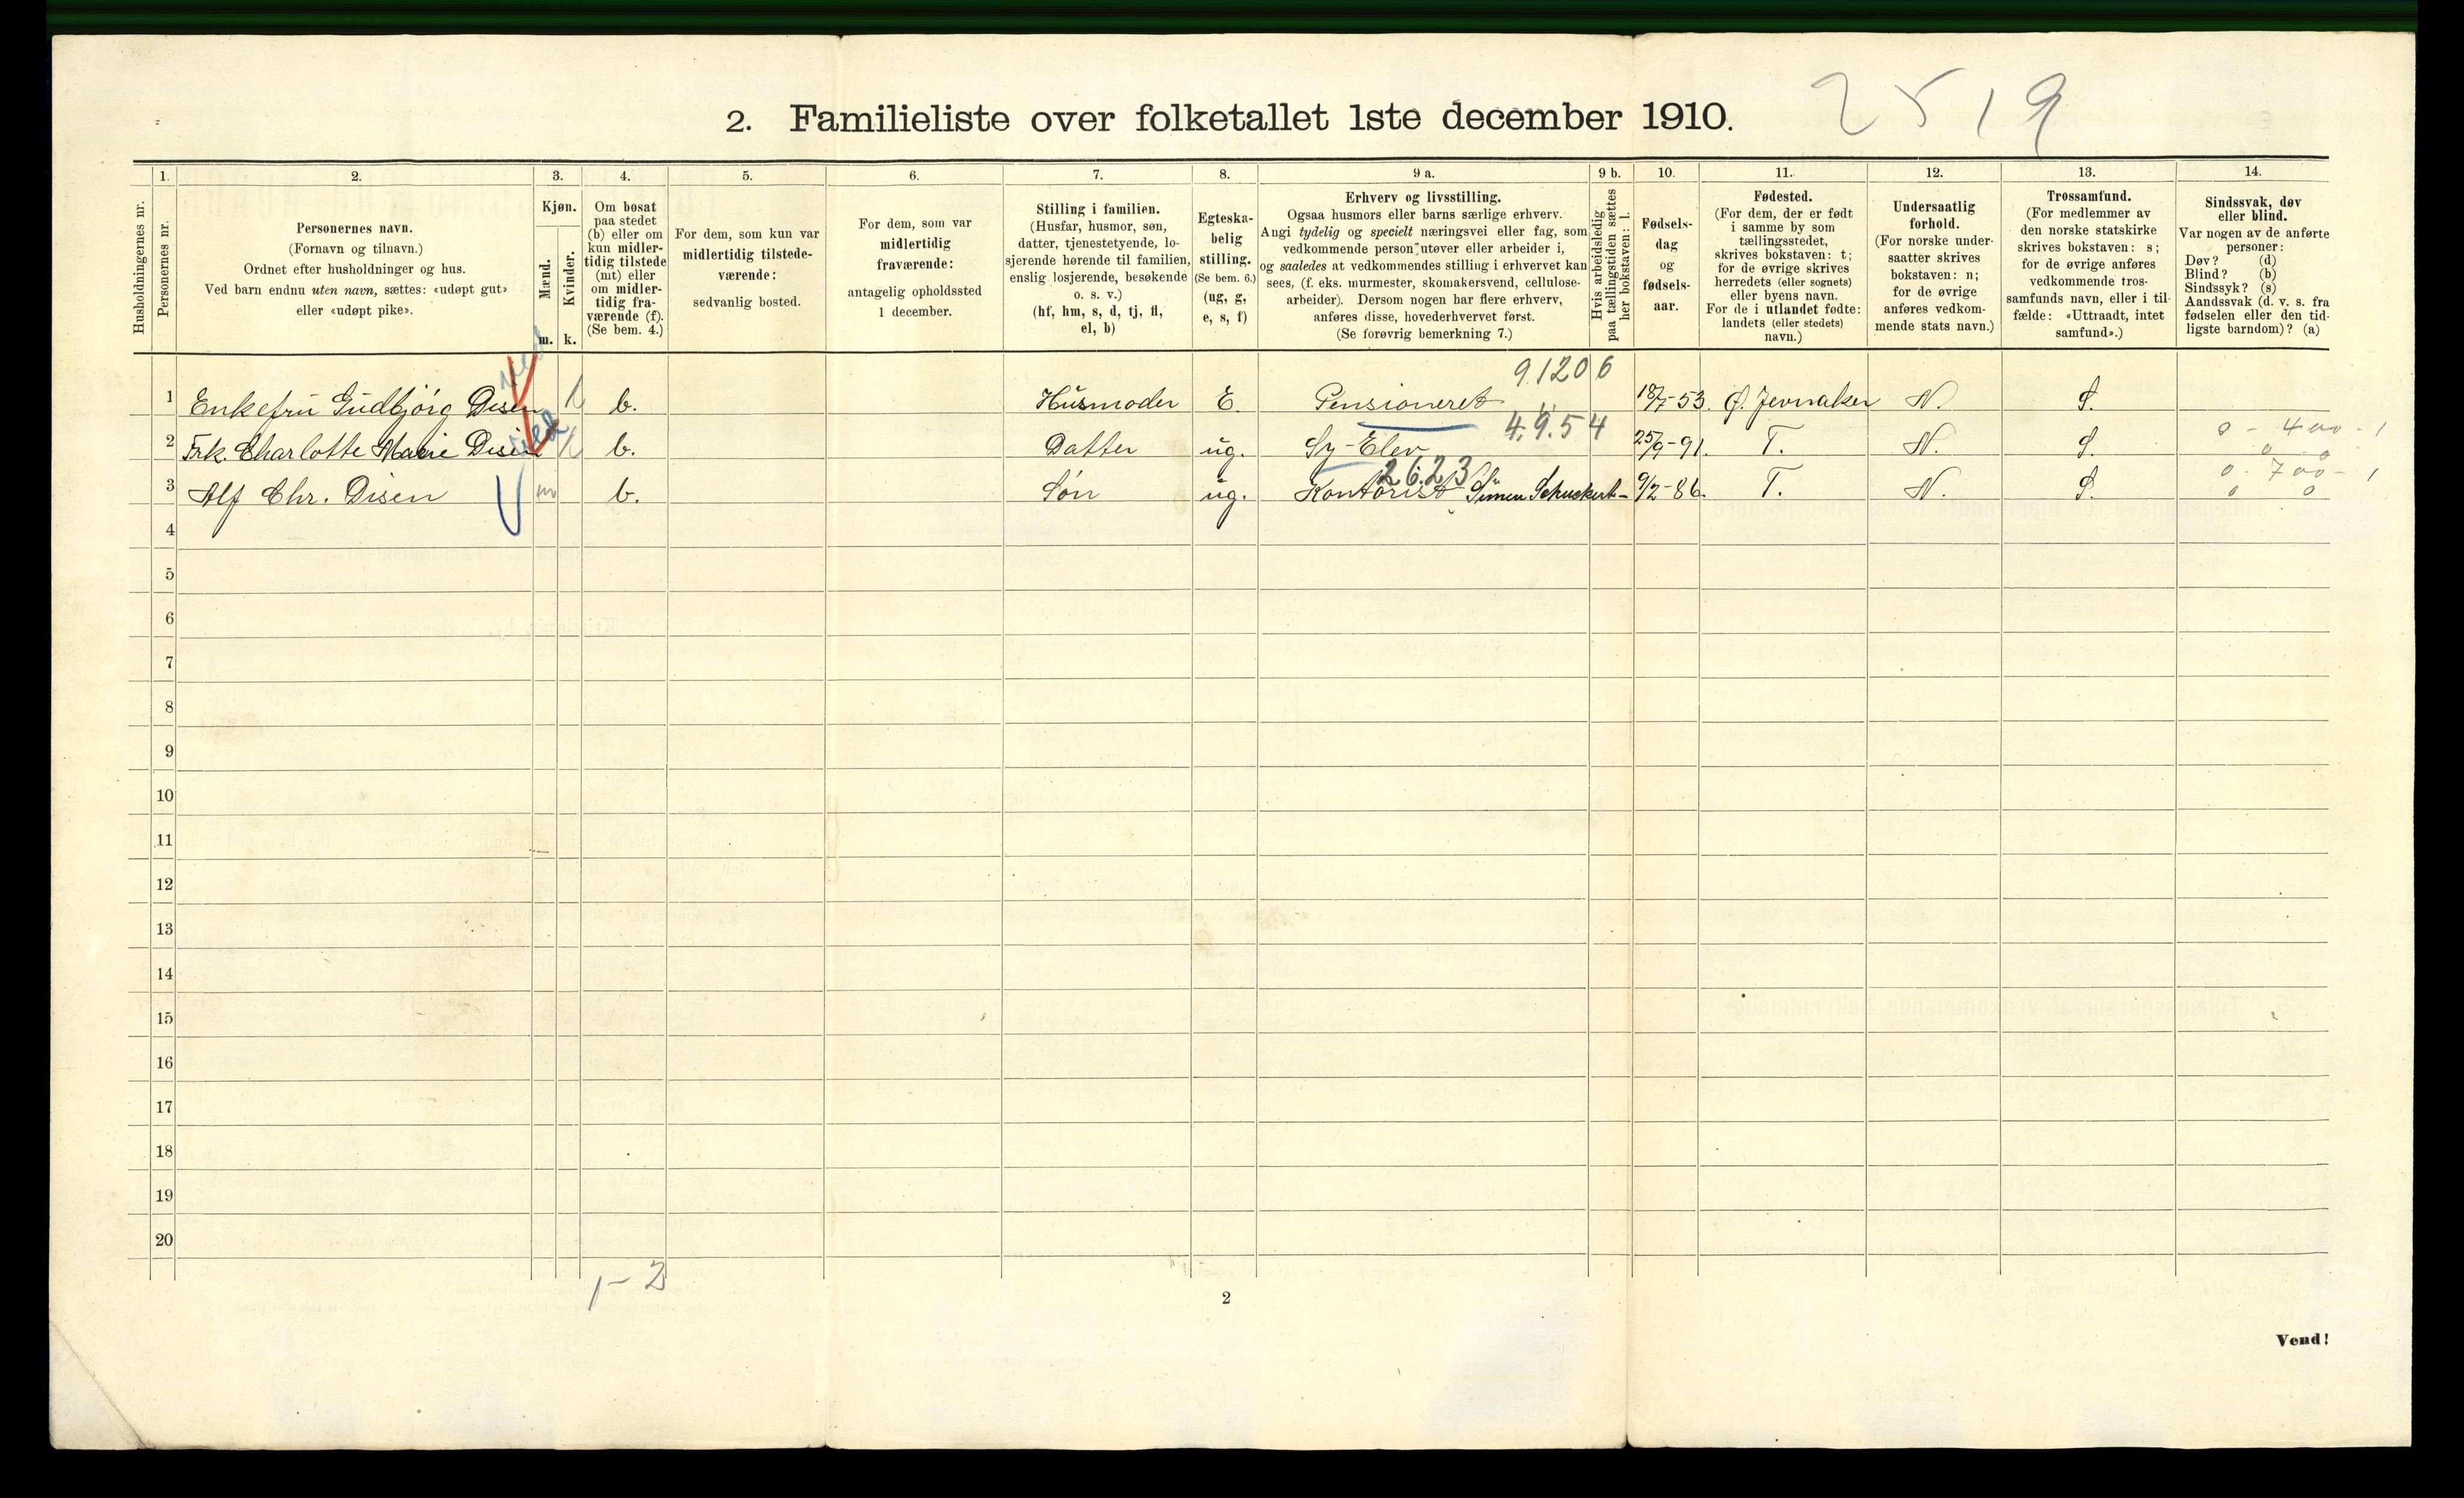 2519
2. Familieliste over folketallet 1ste december 1910.
Husholdningernes nr.
1.
Personernes nr.
2.
Personernes navn.
(Fornavn og tilnavn.)
Ordnet efter husholdninger og hus.
Ved barn endnu uten navn, sættes: «udøpt gut»
eller «udøpt pike».
3.
Kjøn.
Mænd.
m.
Kvinder.
k.
4.
Om bosat
paa stedet
(b) eller om
kun midler-
tidig tilstede
(mt) eller
om midler-
tidig fra-
værende (f).
(Se bem. 4.)
5.
For dem, som kun var
midlertidig tilstede-
værende:
sedvanlig bosted.
6.
For dem, som var
midlertidig
fraværende:
antagelig opholdssted
1 december.
7.
Stilling i familien.
(Husfar, husmor, søn,
datter, tjenestetyende, lo-
sjerende hørende til familien,
enslig losjerende, besøkende
o. s. v.)
(hf, hm, s, d, tj, fl,
el, b)
8.
Egteska-
belig
stilling.
(Se bem. 6.)
(ug, g,
e, s, f)
9 a.
Erhverv og livsstilling.
Ogsaa husmors eller barns særlige erhverv.
Angi tydelig og specielt næringsvei eller fag, som
vedkommende person utøver eller arbeider i,
og saaledes at vedkommendes stilling i erhvervet kan
sees, (f. eks. murmester, skomakersvend, cellulose-
arbeider). Dersom nogen har flere erhverv,
anføres disse, hovederhvervet først.
(Se forøvrig bemerkning 7.)
9 b.
Hvis arbeidsledig
paa tællingstiden sættes
her bokstaven: l.
10.
Fødsels-
dag
og
fødsels-
aar.
11.
Fødested.
(For dem, der er født
i samme by som
tællingsstedet,
skrives bokstaven: t;
for de øvrige skrives
herredets (eller sognets)
eller byens navn.
For de i utlandet fødte:
landets (eller stedets)
navn.)
12.
Undersaatlig
forhold.
(For norske under-
saatter skrives
bokstaven: n;
for de øvrige
anføres vedkom-
mende stats navn.)
13.
Trossamfund.
(For medlemmer av
den norske statskirke
skrives bokstaven: s;
for de øvrige anføres
vedkommende tros-
samfunds navn, eller i til-
fælde: «Uttraadt, intet
samfund».)
14.
Sindssvak, døv
eller blind.
Var nogen av de anførte
personer:
Døv? (d)
Blind? (b)
Sindssyk? (s)
Aandssvak (d. v. s. fra
fødselen eller den tid-
ligste barndom)? (a)
9.1206
1 Enkefrü Güdbjörg Disen k b. Hüsmoder E. Pensioneret 18/7-53. Ø. Jevnaker N. S.
4.9.54
0 - 400 - 1
2 Frk. Charlotte Marie Disen k b. Datter üg. Sy-Elev 25/9-91. T. N. S. 0 0
2623
0 - 700 - 1
3 Alf Chr. Disen m b. Sön üg. Kontorist Simen Schuckert- 9/2-86. T. N. S. 0 0
4
5
6
7
8
9
10
11
12
13
14
15
16
17
18
19
20
1-2
2
Vend!